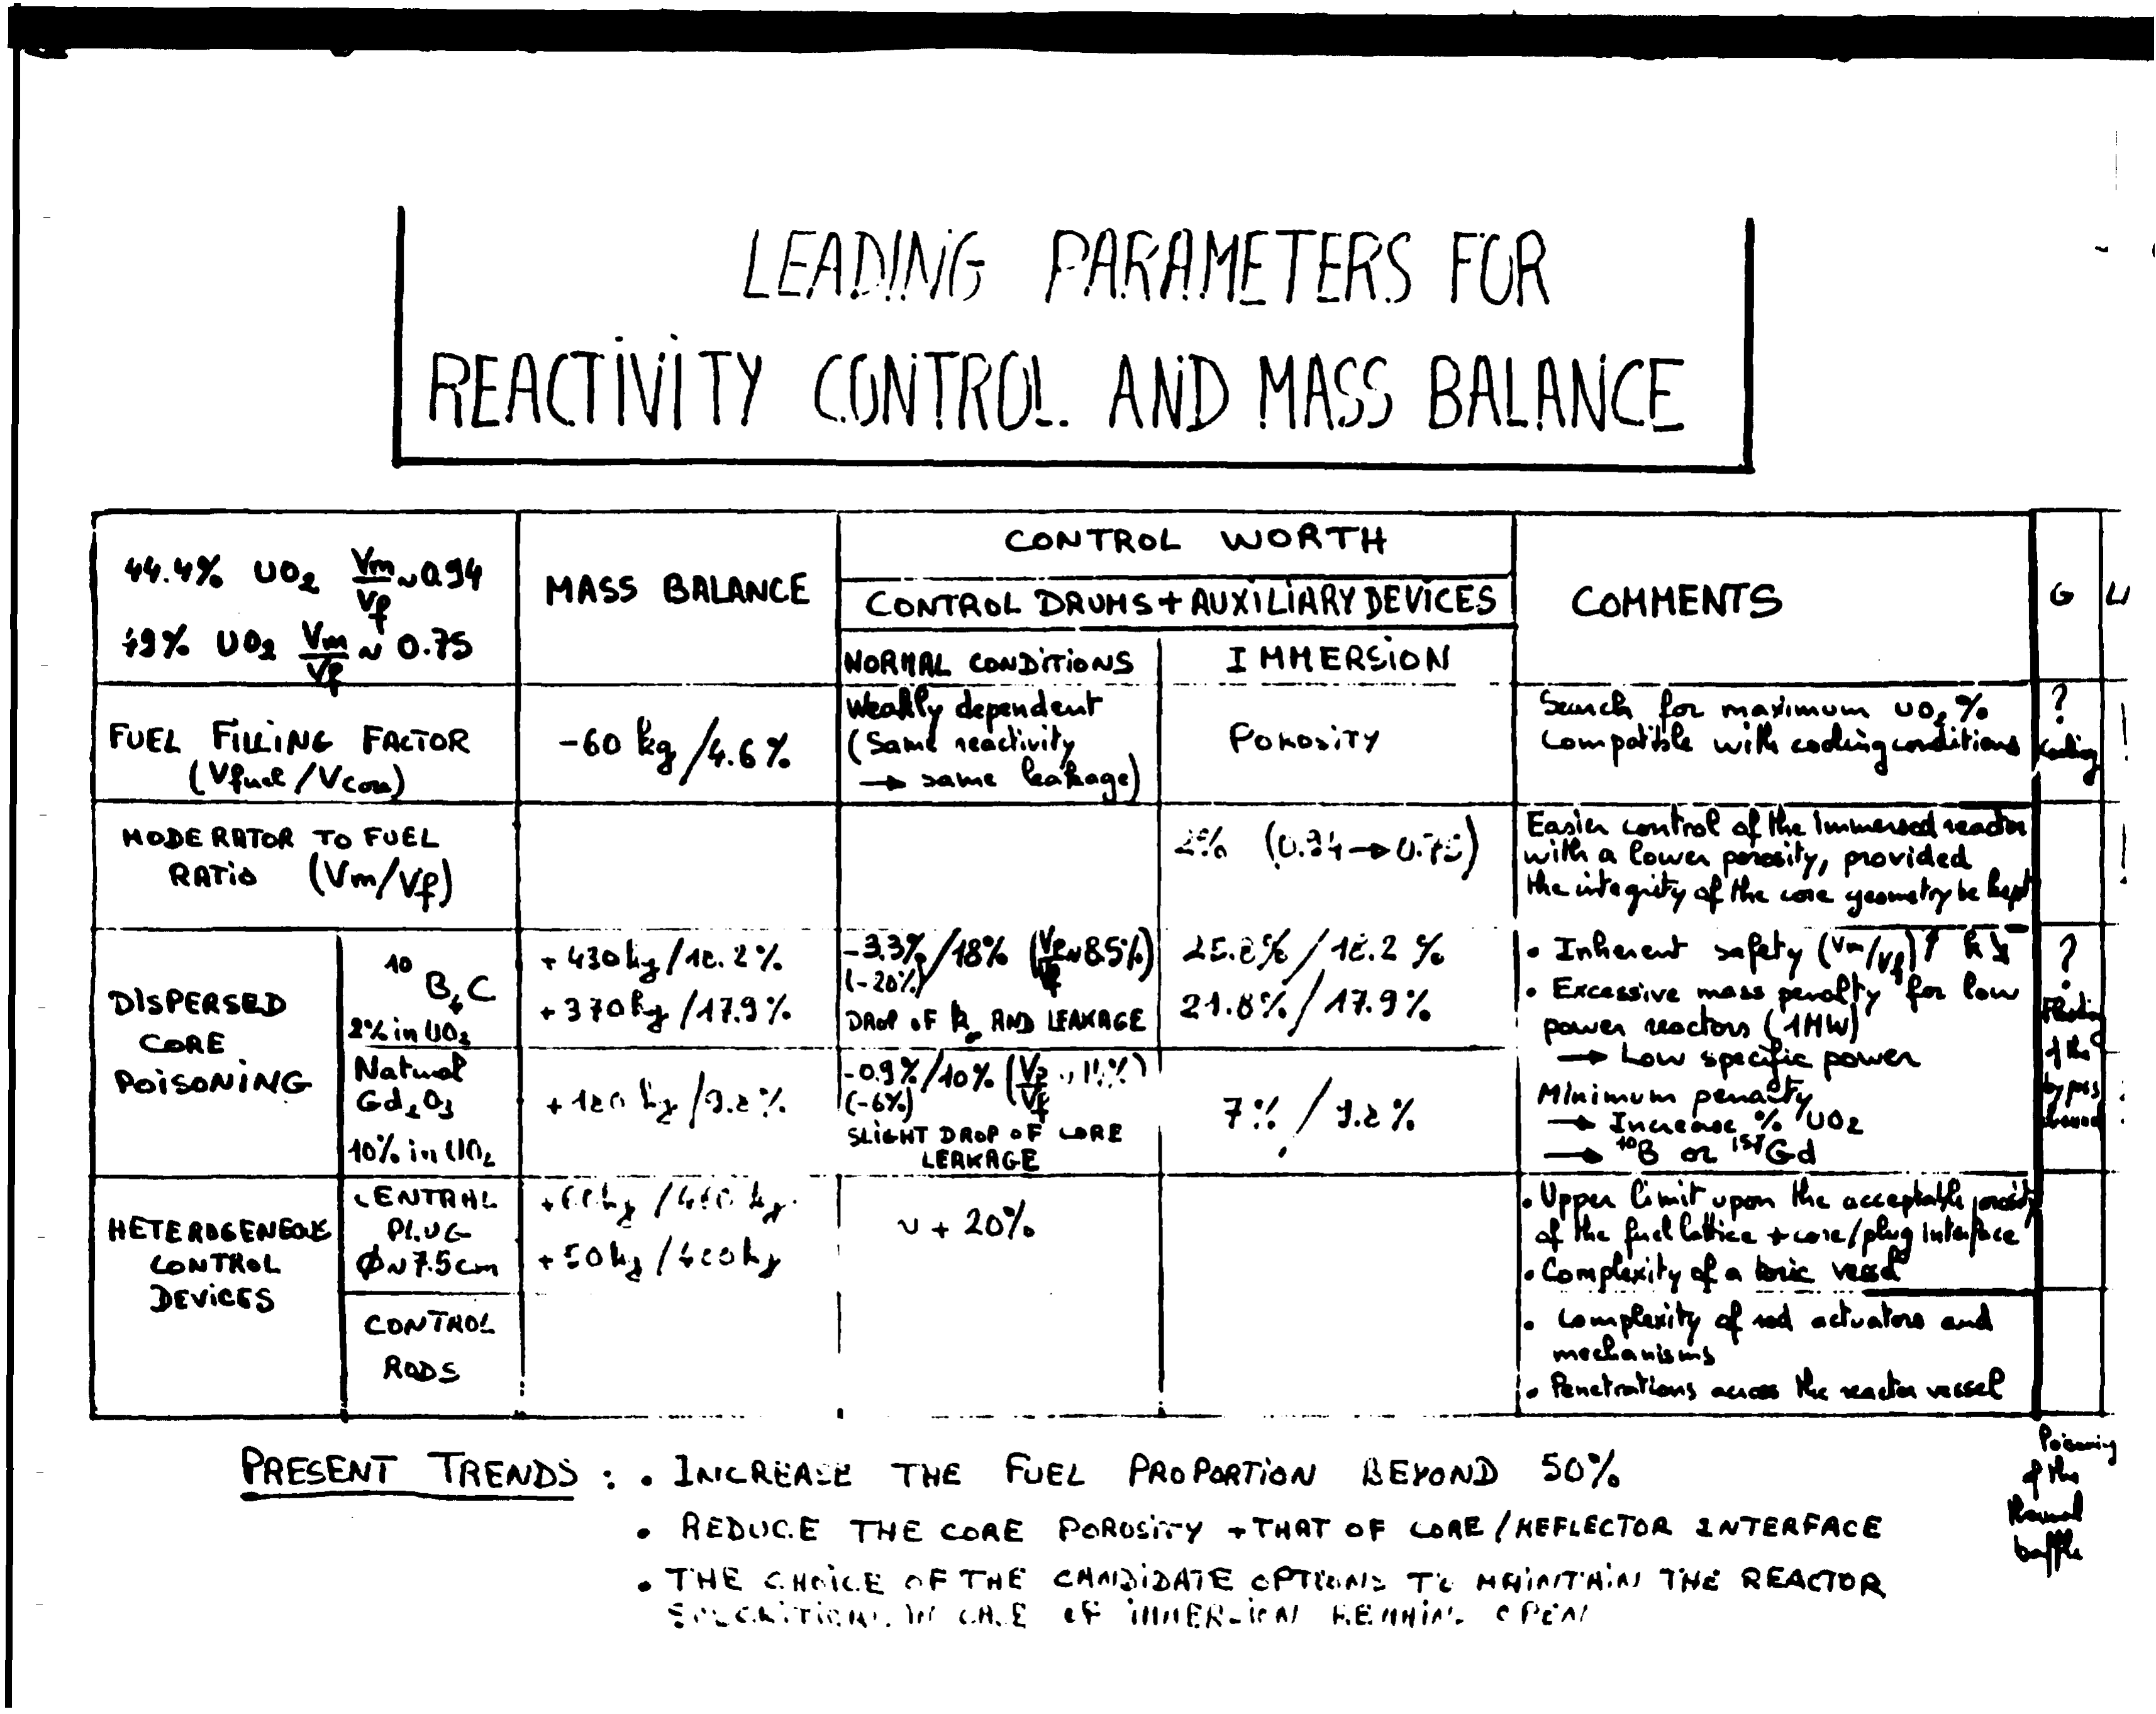 LEADING PARAMETERS FOR
REACTIVITY CONTROL AND MASS BALANCE
44.4% UO2 Vm/Vf ~ 0.94
49% UO2 Vm/Vf ~ 0.75
MASS BALANCE
CONTROL WORTH
CONTROL DRUMS + AUXILIARY DEVICES
NORMAL CONDITIONS
IMMERSION
COMMENTS
G
FUEL FILLING FACTOR
(Vfuel/Vcore)
-60 kg/4.6%
Weakly dependent
(Same reactivity
→ same leakage)
Porosity
Search for maximum UO2 %
compatible with cooling conditions
?
cooling
MODERATOR TO FUEL
RATIO (Vm/Vf)
2% (0.94→0.75)
Easier control of the immersed reactor
with a lower porosity, provided
the integrity of the core geometry be kept
DISPERSED
CORE
POISONING
10
B4C
2% in UO2
+ 430 kg/18.2%
+ 370 kg/17.9%
-3.3%/18% (Vp/Vf ~ 8.5%)
(-20%)
DROP OF k∞ AND LEAKAGE
25.8%/18.2 %
21.8%/17.9%
• Inherent safety (Vm/Vf)↑ k↘
• Excessive mass penalty for low
power reactors (1MW)
→ Low specific power
Minimum penalty
→ Increase % UO2
→ 10B or 157Gd
?
of the
by pass
Natural
Gd2O3
10% in UO2
+ 180 kg/9.2%
-0.9%/10%
(-6%)
SLIGHT DROP OF CORE
LEAKAGE
7%/9.2%
HETEROGENEOUS
CONTROL
DEVICES
CENTRAL
PLUG
Ø~7.5cm
+50 kg
~ + 20%
• Upper limit upon the acceptable porosity
of the fuel lattice + core/plug interface
• Complexity of a toric vessel
CONTROL
RODS
• Complexity of rod actuators and
mechanisms
• Penetrations across the reactor vessel
PRESENT TRENDS : • INCREASE THE FUEL PROPORTION BEYOND 50%
• REDUCE THE CORE POROSITY + THAT OF CORE/REFLECTOR INTERFACE
• THE CHOICE OF THE CANDIDATE OPTIONS TO MAINTAIN THE REACTOR
IN CASE OF IMMERSION REMAINS OPEN
Poisoning
of the
thermal
baffle